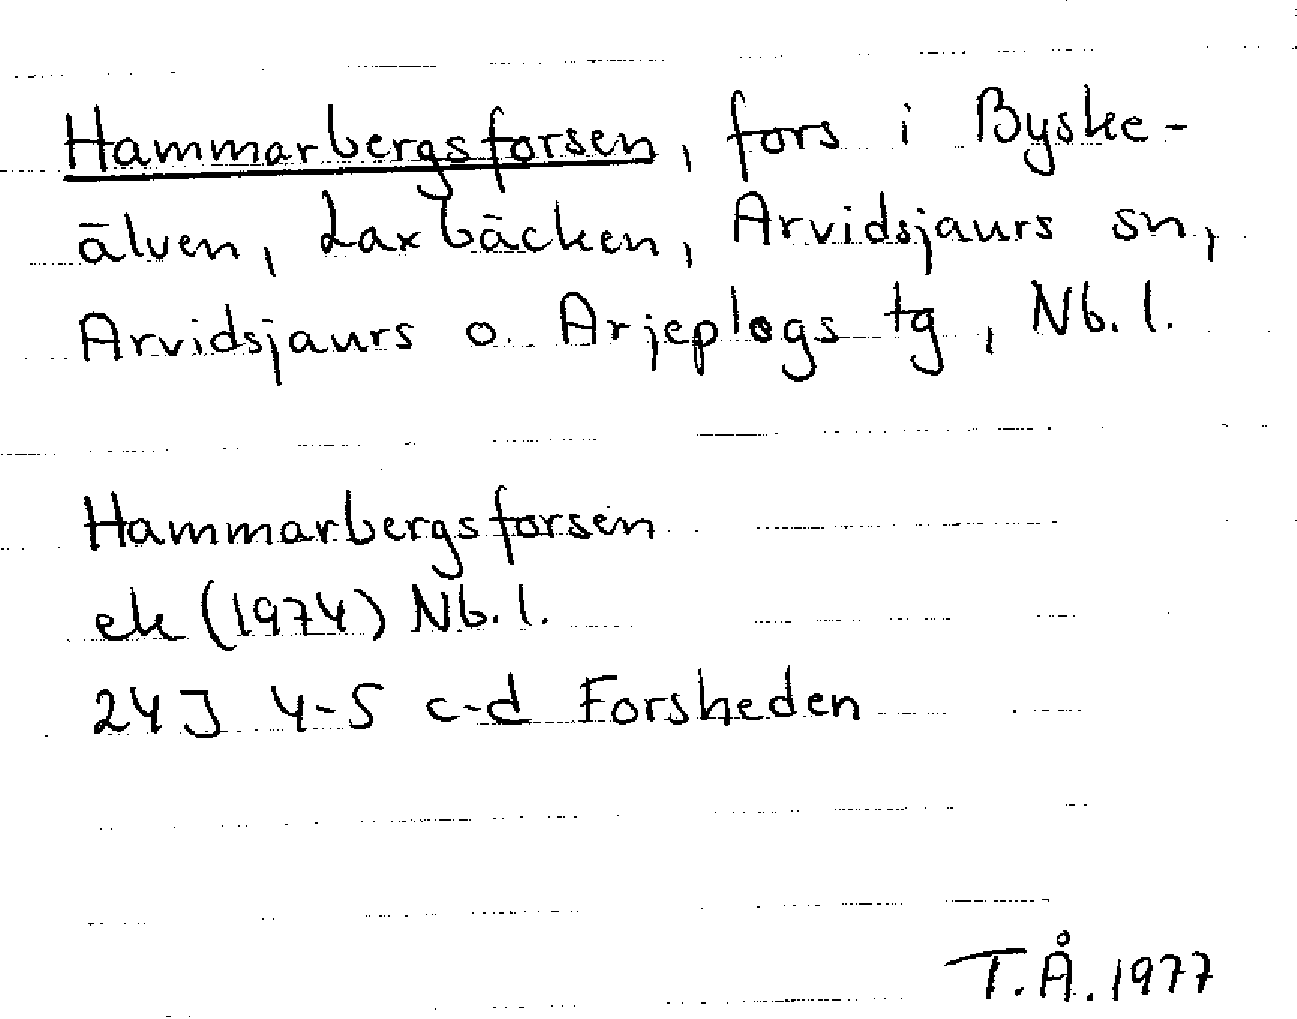 Hammarbergsforsen, fors i Byske-
älven, Laxbäcken, Arvidsjaurs sn,
Arvidsjaurs o. Arjeplogs tg, Nb. l.
Hammarbergsforsen
ek (1974) Nb. l.
24J 4-5 c-d Forsheden
T.Å. 1977